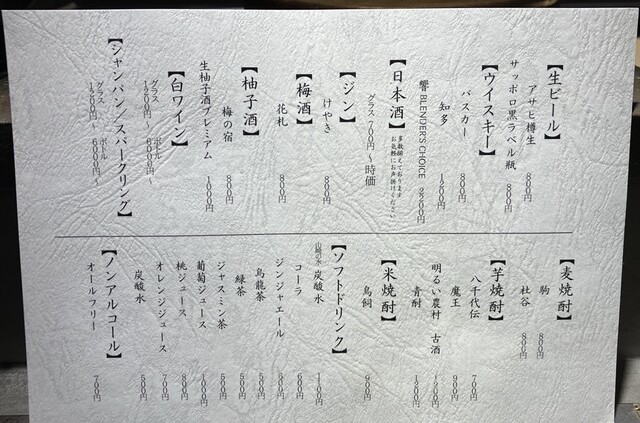 【生ビール】
アサヒ樽生 800円
サッポロ黒ラベル瓶 800円
【ウイスキー】
バスカー 800円
知多 1200円
響 BLENDER'S CHOICE 2200円
【日本酒】多数揃えております お気軽にお声掛けください
グラス 700円〜時価
【ジン】
けやき 800円
【梅酒】
花札 800円
【柚子酒】
梅の宿 800円
生柚子酒プレミアム 1000円
【白ワイン】
グラス 1200円〜 ボトル 6000円〜
【シャンパン/スパークリング】
グラス 1200円〜 ボトル 6000円〜
【麦焼酎】
駒 800円
杜谷 800円
【芋焼酎】
八千代伝 700円
魔王 900円
明るい農村 古酒 1200円
青酎 1200円
【米焼酎】
鳥飼 900円
【ソフトドリンク】
山崎の水 炭酸水 1100円
コーラ 600円
ジンジャエール 500円
烏龍茶 500円
緑茶 500円
ジャスミン茶 500円
葡萄ジュース 1000円
桃ジュース 800円
オレンジジュース 700円
炭酸水 500円
【ノンアルコール】
オールフリー 700円